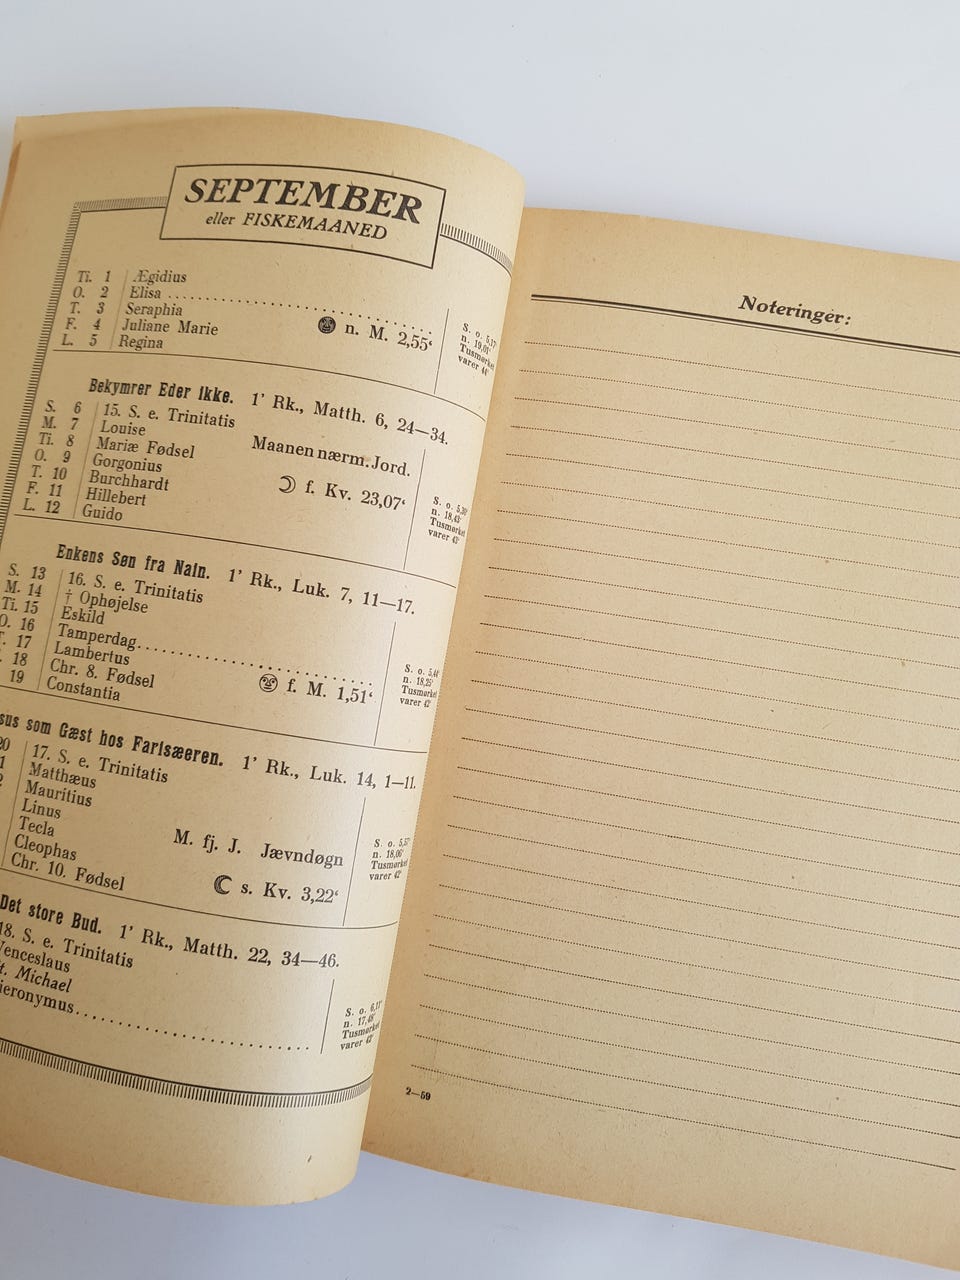 SEPTEMBER
eller FISKEMAANED
Ti. 1 Ægidius
O. 2 Elisa
T. 3 Seraphia
F. 4 Juliane Marie n. M. 2,55‘
L. 5 Regina
S. o. 5,17‘
n. 19,01‘
Tusmørket
varer 44‘
Bekymrer Eder ikke. 1’ Rk., Matth. 6, 24—34.
S. 6 15. S. e. Trinitatis
M. 7 Louise
Ti. 8 Mariæ Fødsel Maanen nærm. Jord.
O. 9 Gorgonius
T. 10 Burchhardt f. Kv. 23,07‘
F. 11 Hillebert
L. 12 Guido
S. o. 5,30‘
n. 18,43‘
Tusmørket
varer 43‘
Enkens Søn fra Nain. 1’ Rk., Luk. 7, 11—17.
S. 13 16. S. e. Trinitatis
M. 14 † Ophøjelse
Ti. 15 Eskild
O. 16 Tamperdag
17 Lambertus
18 Chr. 8. Fødsel f. M. 1,51‘
19 Constantia
S. o. 5,44‘
n. 18,25‘
Tusmørket
varer 42‘
sus som Gæst hos Farisæeren. 1’ Rk., Luk. 14, 1—11.
20 17. S. e. Trinitatis
1 Matthæus
2 Mauritius
Linus
Tecla M. fj. J. Jævndøgn
Cleophas
Chr. 10. Fødsel s. Kv. 3,22‘
S. o. 5,57‘
n. 18,06‘
Tusmørket
varer 42‘
Det store Bud. 1’ Rk., Matth. 22, 34—46.
18. S. e. Trinitatis
Venceslaus
t. Michael
ieronymus
S. o. 6,11‘
n. 17,48‘
Tusmørket
varer 42‘
Noteringer:
2—59